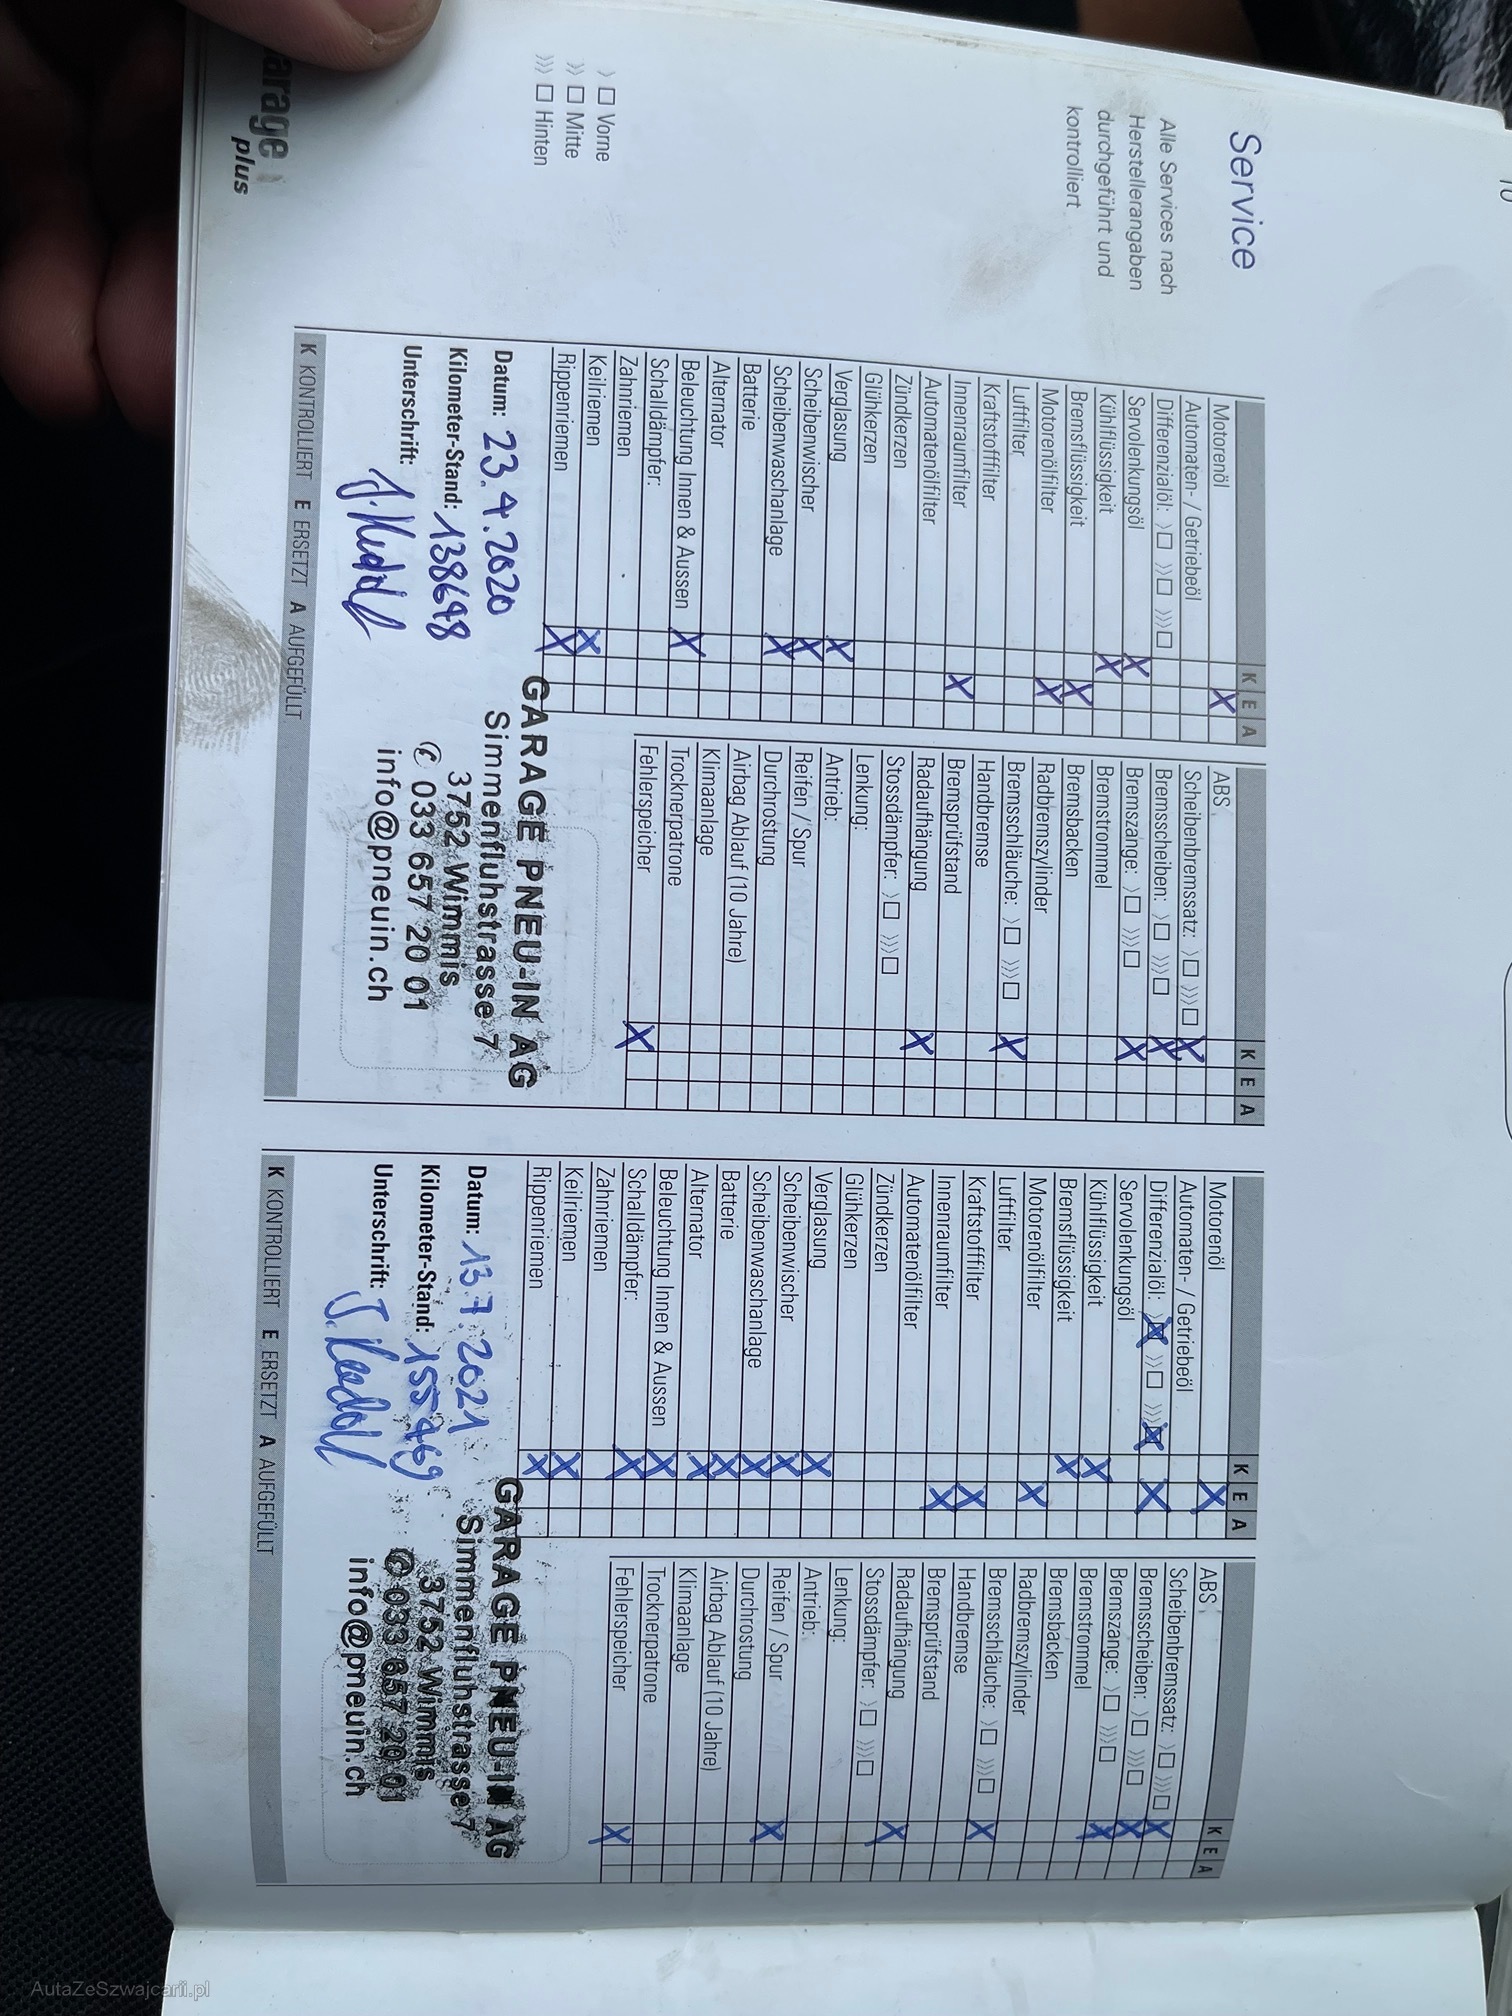 10
Service
Alle Services nach
Herstellerangaben
durchgeführt und
kontrolliert
⟩ ☐ Vorne
⟩⟩ ☐ Mitte
⟩⟩⟩ ☐ Hinten
arage
plus
K E A
Motorenöl X
Automaten- / Getriebeöl
Differenzialöl: ⟩☐ ⟩⟩☐ ⟩⟩⟩☐
Servolenkungsöl X
Kühlflüssigkeit X
Bremsflüssigkeit X
Motorenölfilter X
Luftfilter
Kraftstofffilter
Innenraumfilter X
Automatenölfilter
Zündkerzen
Glühkerzen
Verglasung X
Scheibenwischer X
Scheibenwaschanlage X
Batterie
Alternator
Beleuchtung Innen & Aussen X
Schalldämpfer:
Zahnriemen
Keilriemen X
Rippenriemen X
K E A
ABS
Scheibenbremssatz: ⟩☐ ⟩⟩⟩☐ X
Bremsscheiben: ⟩☐ ⟩⟩⟩☐ X
Bremszange: ⟩☐ ⟩⟩⟩☐ X
Bremstrommel
Bremsbacken
Radbremszylinder
Bremsschläuche: ⟩☐ ⟩⟩⟩☐ X
Handbremse
Bremsprüfstand
Radaufhängung X
Stossdämpfer: ⟩☐ ⟩⟩⟩☐
Lenkung:
Antrieb:
Reifen / Spur
Durchrostung
Airbag Ablauf (10 Jahre)
Klimaanlage
Trocknerpatrone
Fehlerspeicher X
Datum: 23.4.2020
Kilometer-Stand: 138698
Unterschrift:
GARAGE PNEU-IN AG
Simmenfluhstrasse 7
3752 Wimmis
✆ 033 657 20 01
info@pneuin.ch
K KONTROLLIERT E ERSETZT A AUFGEFÜLLT
K E A
Motorenöl X
Automaten- / Getriebeöl
Differenzialöl: ⟩☒ ⟩⟩☐ ⟩⟩⟩☒ X
Servolenkungsöl
Kühlflüssigkeit X
Bremsflüssigkeit X
Motorenölfilter X
Luftfilter
Kraftstofffilter X
Innenraumfilter X
Automatenölfilter
Zündkerzen
Glühkerzen
Verglasung X
Scheibenwischer X
Scheibenwaschanlage X
Batterie X
Alternator X
Beleuchtung Innen & Aussen X
Schalldämpfer: X
Zahnriemen
Keilriemen X
Rippenriemen X
K E A
ABS
Scheibenbremssatz: ⟩☐ ⟩⟩⟩☐ X
Bremsscheiben: ⟩☐ ⟩⟩⟩☐ X
Bremszange: ⟩☐ ⟩⟩⟩☐ X
Bremstrommel
Bremsbacken
Radbremszylinder
Bremsschläuche: ⟩☐ ⟩⟩⟩☐ X
Handbremse
Bremsprüfstand
Radaufhängung X
Stossdämpfer: ⟩☐ ⟩⟩⟩☐
Lenkung:
Antrieb:
Reifen / Spur X
Durchrostung
Airbag Ablauf (10 Jahre)
Klimaanlage
Trocknerpatrone
Fehlerspeicher X
Datum: 13.7.2021
Kilometer-Stand: 155469
Unterschrift:
GARAGE PNEU-IN AG
Simmenfluhstrasse 7
3752 Wimmis
✆ 033 657 20 01
info@pneuin.ch
K KONTROLLIERT E ERSETZT A AUFGEFÜLLT
AutaZeSzwajcarii.pl